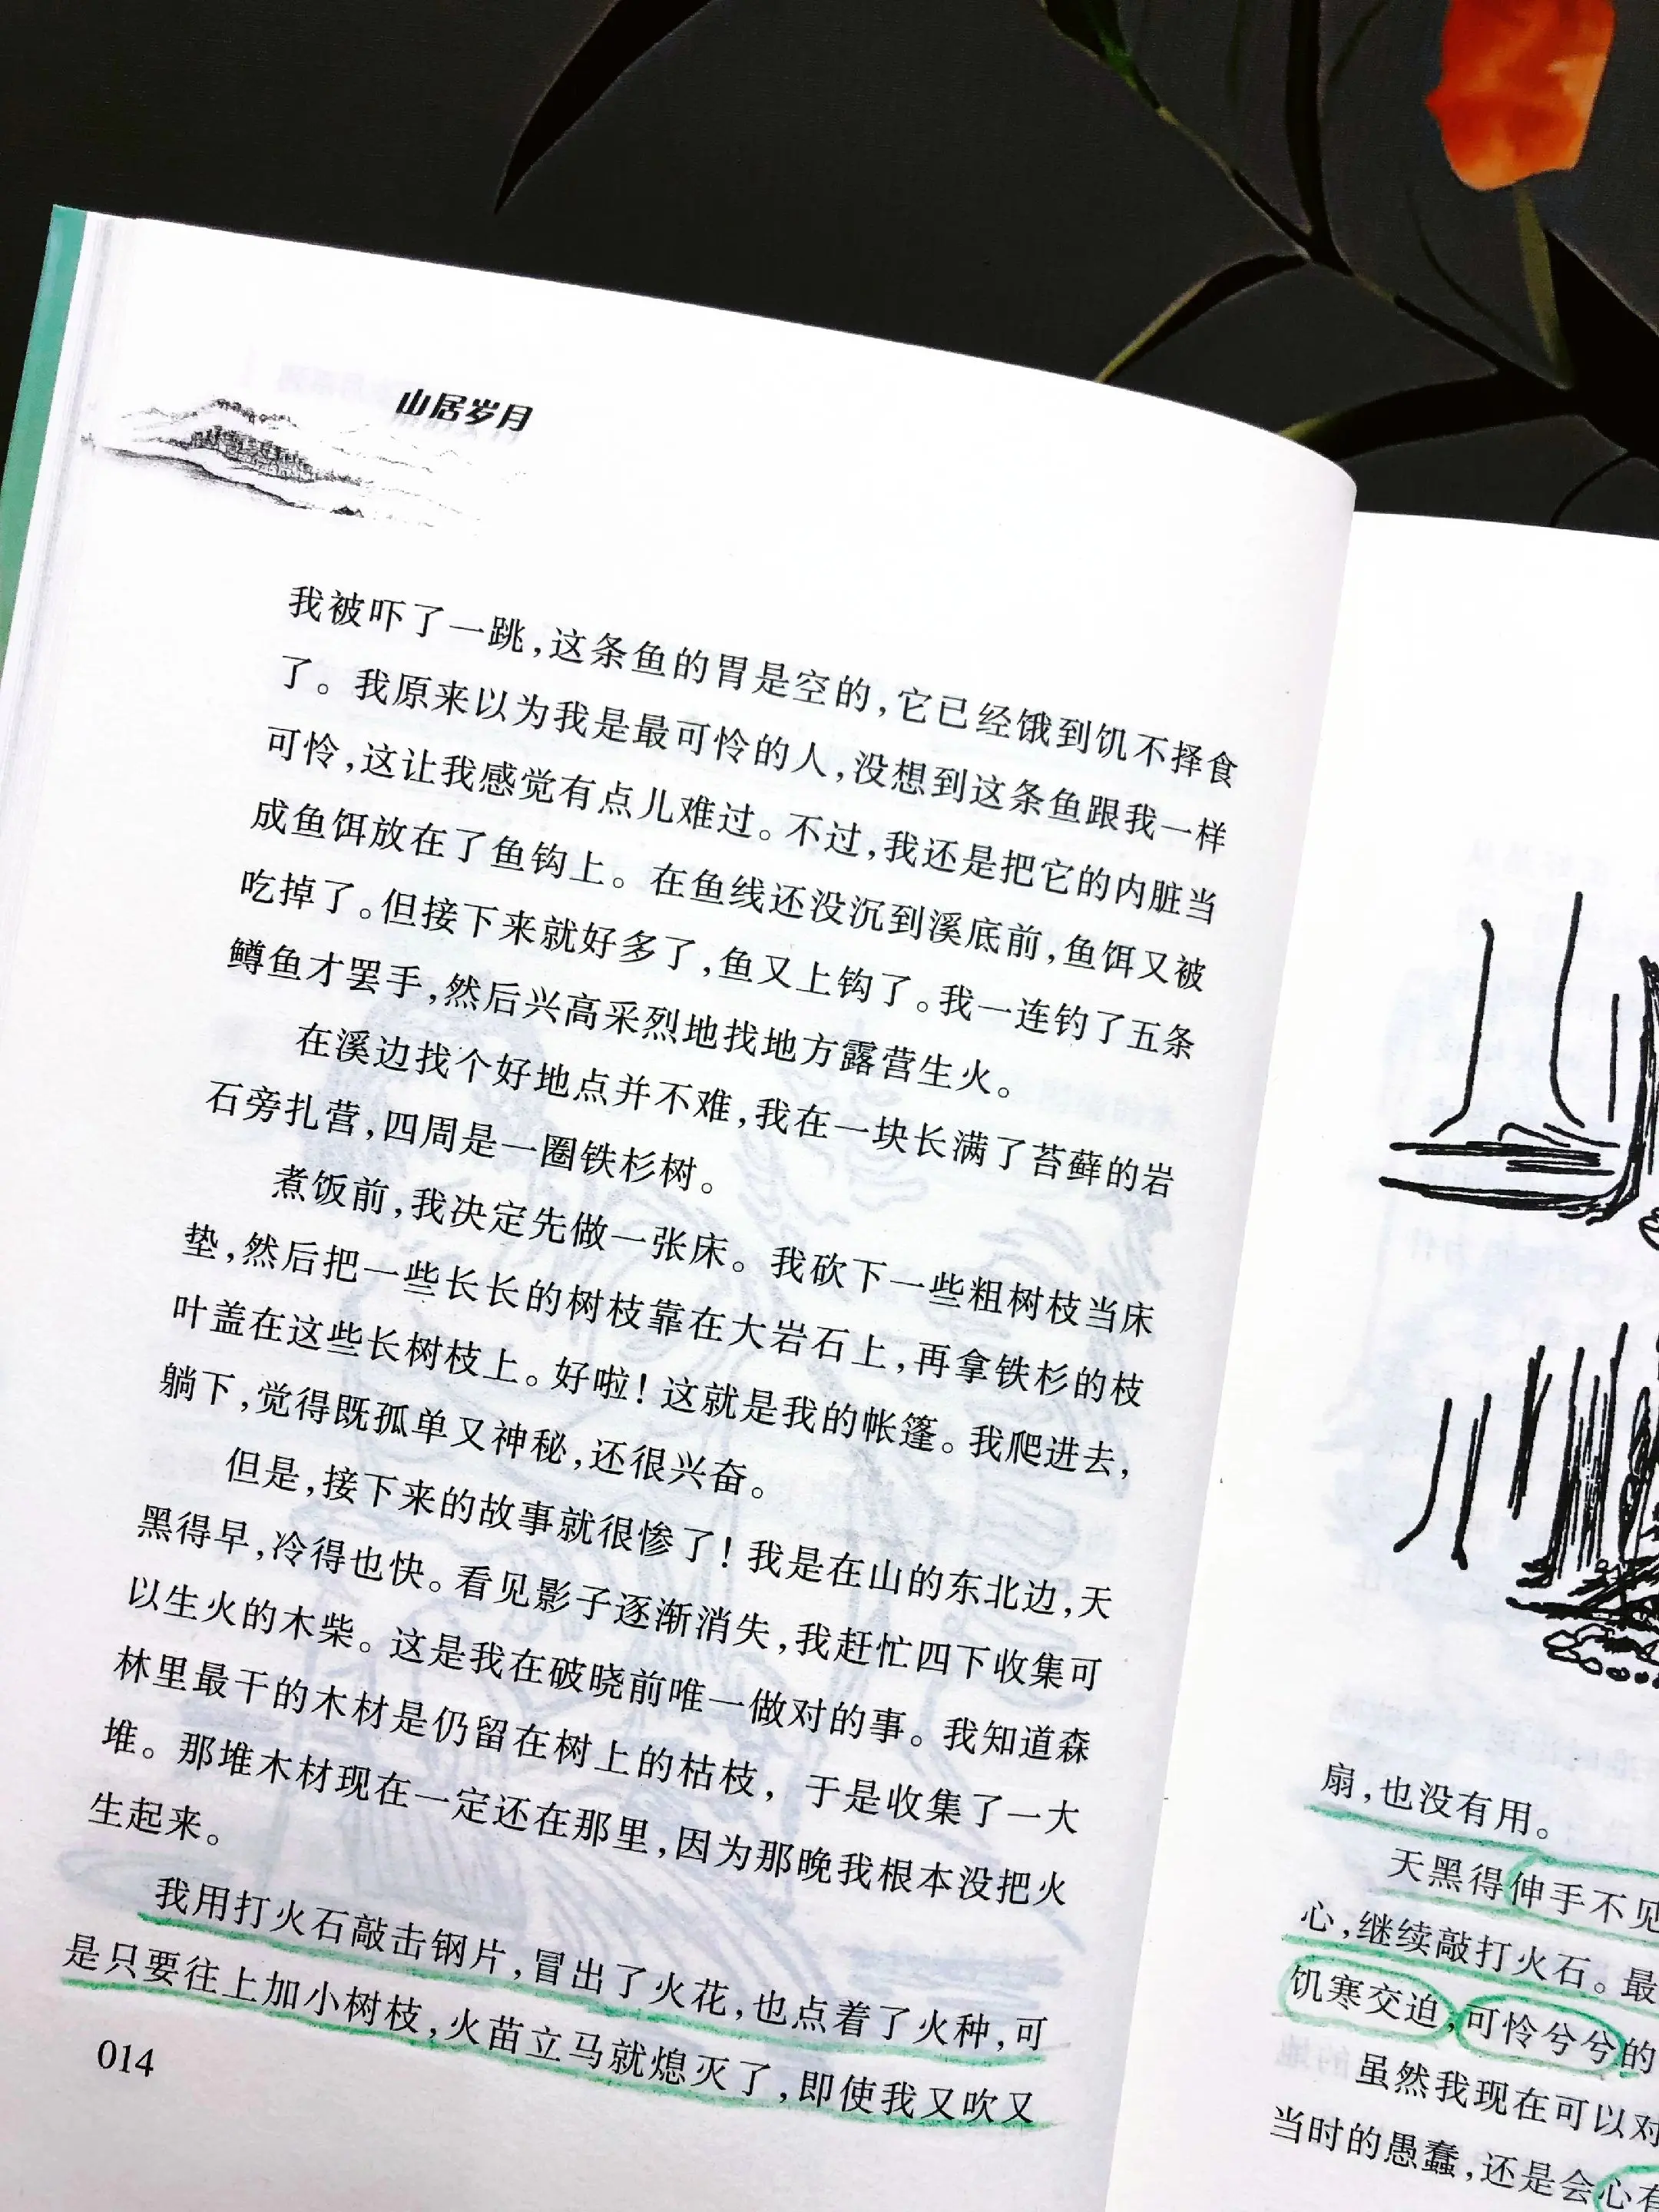 山居岁月
我被吓了一跳，这条鱼的胃是空的，它已经饿到饥不择食
了。我原来以为我是最可怜的人，没想到这条鱼跟我一样
可怜，这让我感觉有点儿难过。不过，我还是把它的内脏当
成鱼饵放在了鱼钩上。在鱼线还没沉到溪底前，鱼饵又被
吃掉了。但接下来就好多了，鱼又上钩了。我一连钓了五条
鳟鱼才罢手，然后兴高采烈地找地方露营生火。
在溪边找个好地点并不难，我在一块长满了苔藓的岩
石旁扎营，四周是一圈铁杉树。
煮饭前，我决定先做一张床。我砍下一些粗树枝当床
垫，然后把一些长长的树枝靠在大岩石上，再拿铁杉的枝
叶盖在这些长树枝上。好啦！这就是我的帐篷。我爬进去，
躺下，觉得既孤单又神秘，还很兴奋。
但是，接下来的故事就很惨了！我是在山的东北边，天
黑得早，冷得也快。看见影子逐渐消失，我赶忙四下收集可
以生火的木柴。这是我在破晓前唯一做对的事。我知道森
林里最干的木材是仍留在树上的枯枝，于是收集了一大
堆。那堆木材现在一定还在那里，因为那晚我根本没把火
生起来。
我用打火石敲击钢片，冒出了火花，也点着了火种，可
是只要往上加小树枝，火苗立马就熄灭了，即使我又吹又
014
扇，也没有用。
天黑得伸手不见
心，继续敲打火石。最
饥寒交迫，可怜兮兮的
虽然我现在可以对
当时的愚蠢，还是会心有